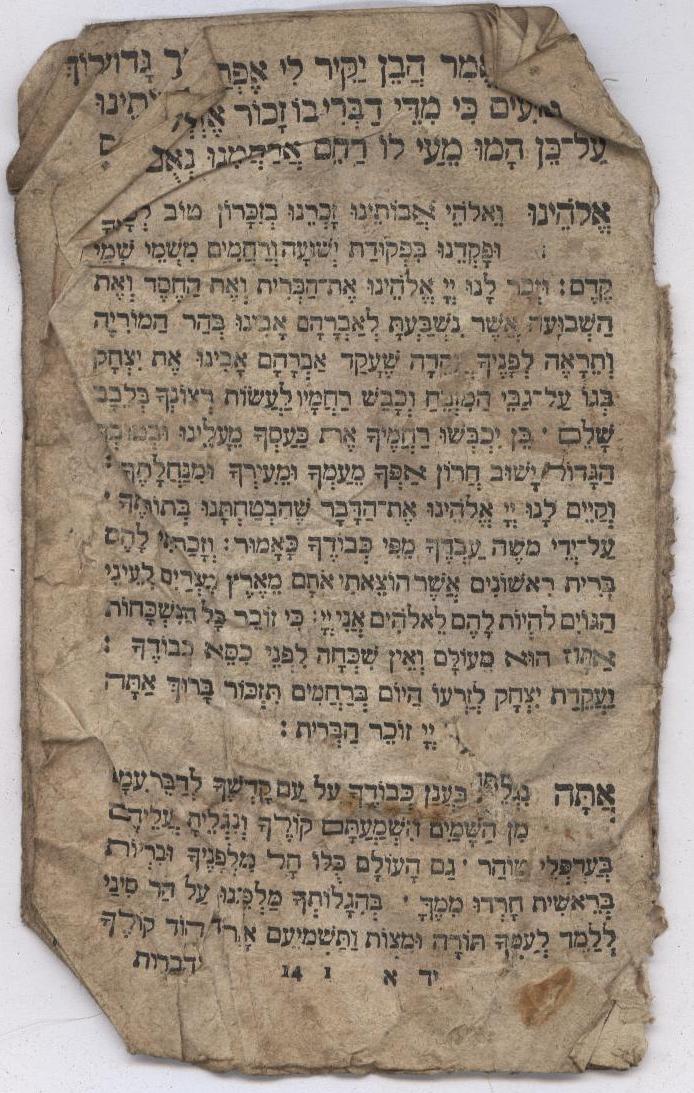 הֲבֵן יַקִּיר לִי
כִּי מִדֵּי דַבְּרִי בוֹ זָכוֹר
עַל־כֵּן הָמוּ מֵעַי לוֹ רַחֵם אֲרַחֲמֶנּוּ נְאֻם
אֱלֹהֵינוּ וֵאלֹהֵי אֲבוֹתֵינוּ זָכְרֵנוּ בְּזִכָּרוֹן טוֹב
וּפָקְדֵנוּ בִּפְקוּדַת יְשׁוּעָה וְרַחֲמִים מִשְּׁמֵי שְׁמֵי
קֶדֶם: וּזְכָר לָנוּ יְיָ אֱלֹהֵינוּ אֶת־הַבְּרִית וְאֶת הַחֶסֶד וְאֶת
הַשְּׁבוּעָה אֲשֶׁר נִשְׁבַּעְתָּ לְאַבְרָהָם אָבִינוּ בְּהַר הַמּוֹרִיָּה
וְתֵרָאֶה לְפָנֶיךָ עֲקֵדָה שֶׁעָקַד אַבְרָהָם אָבִינוּ אֶת יִצְחָק
בְּנוֹ עַל־גַּבֵּי הַמִּזְבֵּחַ וְכָבַשׁ רַחֲמָיו לַעֲשׂוֹת רְצוֹנְךָ בְּלֵבָב
שָׁלֵם · כֵּן יִכְבְּשׁוּ רַחֲמֶיךָ אֶת כַּעַסְךָ מֵעָלֵינוּ וּבְטוּבְךָ
הַגָּדוֹל יָשׁוּב חֲרוֹן אַפְּךָ מֵעַמְּךָ וּמֵעִירְךָ וּמִנַּחֲלָתֶךָ :
וְקַיֵּים לָנוּ יְיָ אֱלֹהֵינוּ אֶת־הַדָּבָר שֶׁהִבְטַחְתָּנוּ בְּתוֹרָתֶךָ ·
עַל־יְדֵי משֶׁה עַבְדֶּךָ מִפִּי כְבוֹדֶךָ כָּאָמוּר: וְזָכַרְתִּי לָהֶם
בְּרִית רִאשׁוֹנִים אֲשֶׁר הוֹצֵאתִי אֹתָם מֵאֶרֶץ מִצְרַיִם לְעֵינֵי
הַגּוֹיִם לִהְיוֹת לָהֶם לֵאלֹהִים אֲנִי יְיָ: כִּי זוֹכֵר כָּל הַנִּשְׁכָּחוֹת
אַתָּה הוּא מֵעוֹלָם וְאֵין שִׁכְחָה לִפְנֵי כִסֵּא כְבוֹדֶךָ :
וַעֲקֵדַת יִצְחָק לְזַרְעוֹ הַיּוֹם בְּרַחֲמִים תִּזְכּוֹר בָּרוּךְ אַתָּה
יְיָ זוֹכֵר הַבְּרִית :
אַתָּה נִגְלֵיתָ בַּעֲנַן כְּבוֹדֶךָ עַל עַם קָדְשְׁךָ לְדַבֵּר עִמָּם
מִן הַשָּׁמַיִם הִשְׁמַעְתָּם קוֹלֶךָ וְנִגְלֵיתָ עֲלֵיהֶם
בְּעַרְפְלֵי טוֹהַר · גַּם הָעוֹלָם כֻּלּוֹ חָל מִלְּפָנֶיךָ וּבְרִיּוֹת
בְּרֵאשִׁית חָרְדוּ מִמֶּךָּ · בְּהִגָּלוֹתְךָ מַלְכֵּנוּ עַל הַר סִינַי
לְלַמֵּד לְעַמְּךָ תּוֹרָה וּמִצְוֹת וַתַּשְׁמִיעֵם אֶת הוֹד קוֹלֶךָ
יד א 1 14 ודברות